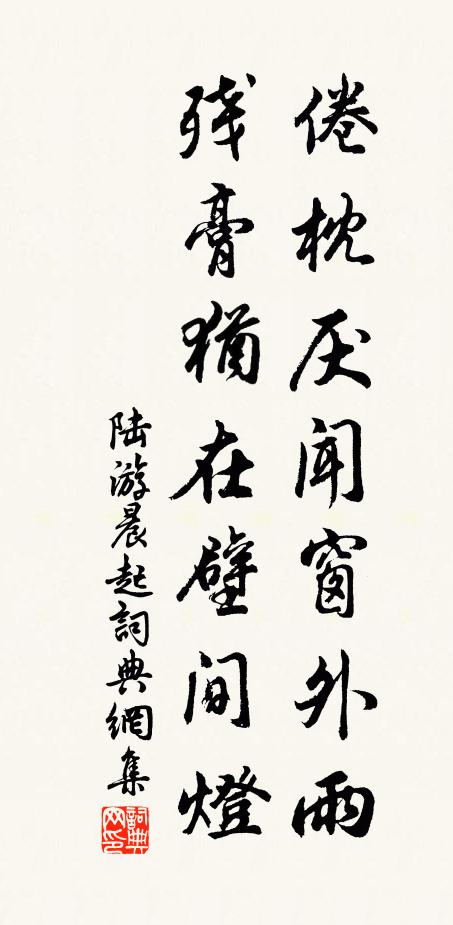 倦枕厌闻窗外雨
残膏猶在壁間燈
陆游晨起詞典網集
詞典网印